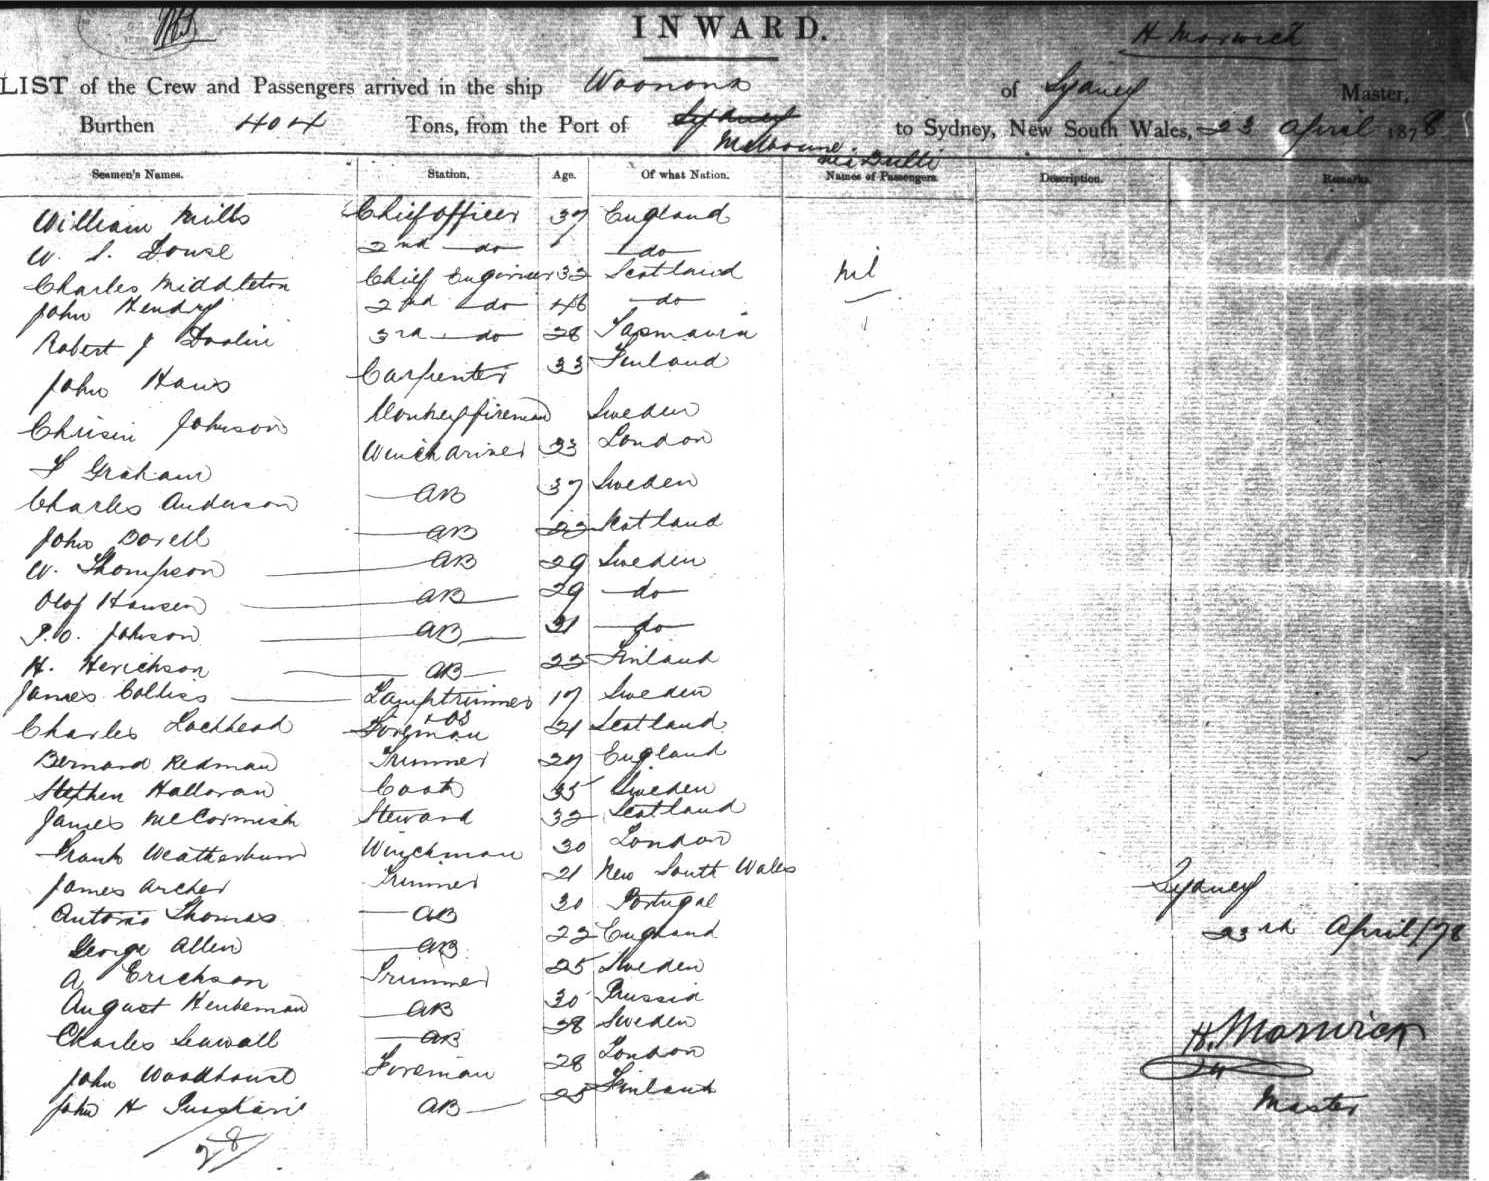 INWARD.
H Morwick
LIST of the Crew and Passengers arrived in the ship Woonona of Sydney Master,
Burthen 404 Tons, from the Port of Sydney Melbourne via Bulli to Sydney, New South Wales, 23 April 1878
Seamen's Names. Station. Age. Of what Nation. Names of Passengers Description. Remarks.
William Mills Chief Officer 37 England
W. S. Douse 2nd do do
Charles Middleton Chief Engineer 32 Scotland nil
John Hendry 2nd do 46 do
Robert J 3rd do 28 Tasmania
John Haws Carpenter 33 Finland
Johnson Donkeyfireman Sweden
Graham Winchdriver 23 London
Charles Anderson AB 37 Sweden
John Dorell AB 22 Scotland
W. Thompson AB 29 Sweden
Olof Hansen AB 29 do
P. O. Johnson AB 31 do
H. Henrickson AB 22 Finland
James Colliss Lamptrimmer & OS 17 Sweden
Charles Lochhead Foreman 21 Scotland
Bernard Redman Trimmer 27 England
Stephen Halloran Cook 35 Sweden
James McCormish Steward 32 Scotland
Frank Weatherburn Winchman 30 London
James Archer Trimmer 21 New South Wales
Antonio Thomas AB 30 Portugal
George Allen AB 22 England
A Erickson Trimmer 25 Sweden
August AB 30 Prussia
Charles Sewall AB 28 Sweden
John Woodhouse Foreman 28 London
John H AB 25 Finland
28
Sydney
23rd April/78
H. Morwick
Master